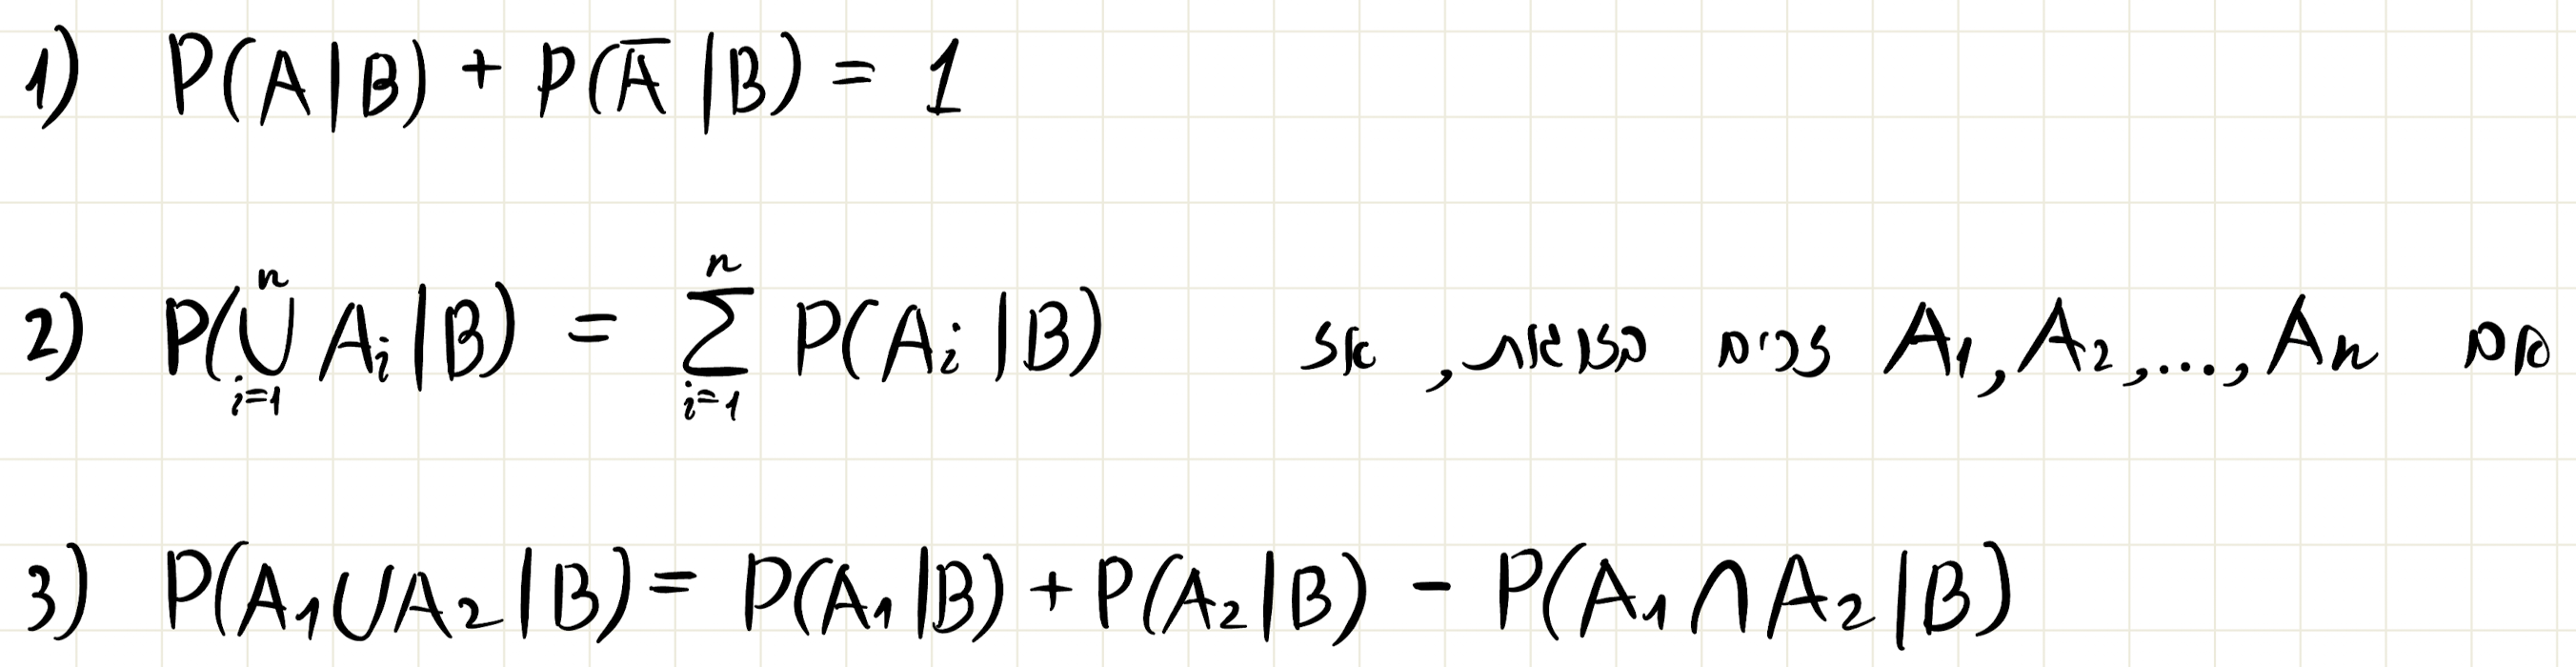 1) P(A|B) + P(A̅|B) = 1
2) P(⋃_{i=1}^{n} A_i|B) = ∑_{i=1}^{n} P(A_i|B) אם A_1, A_2, ..., A_n זרים, אז
3) P(A_1∪A_2|B) = P(A_1|B) + P(A_2|B) - P(A_1∩A_2|B)